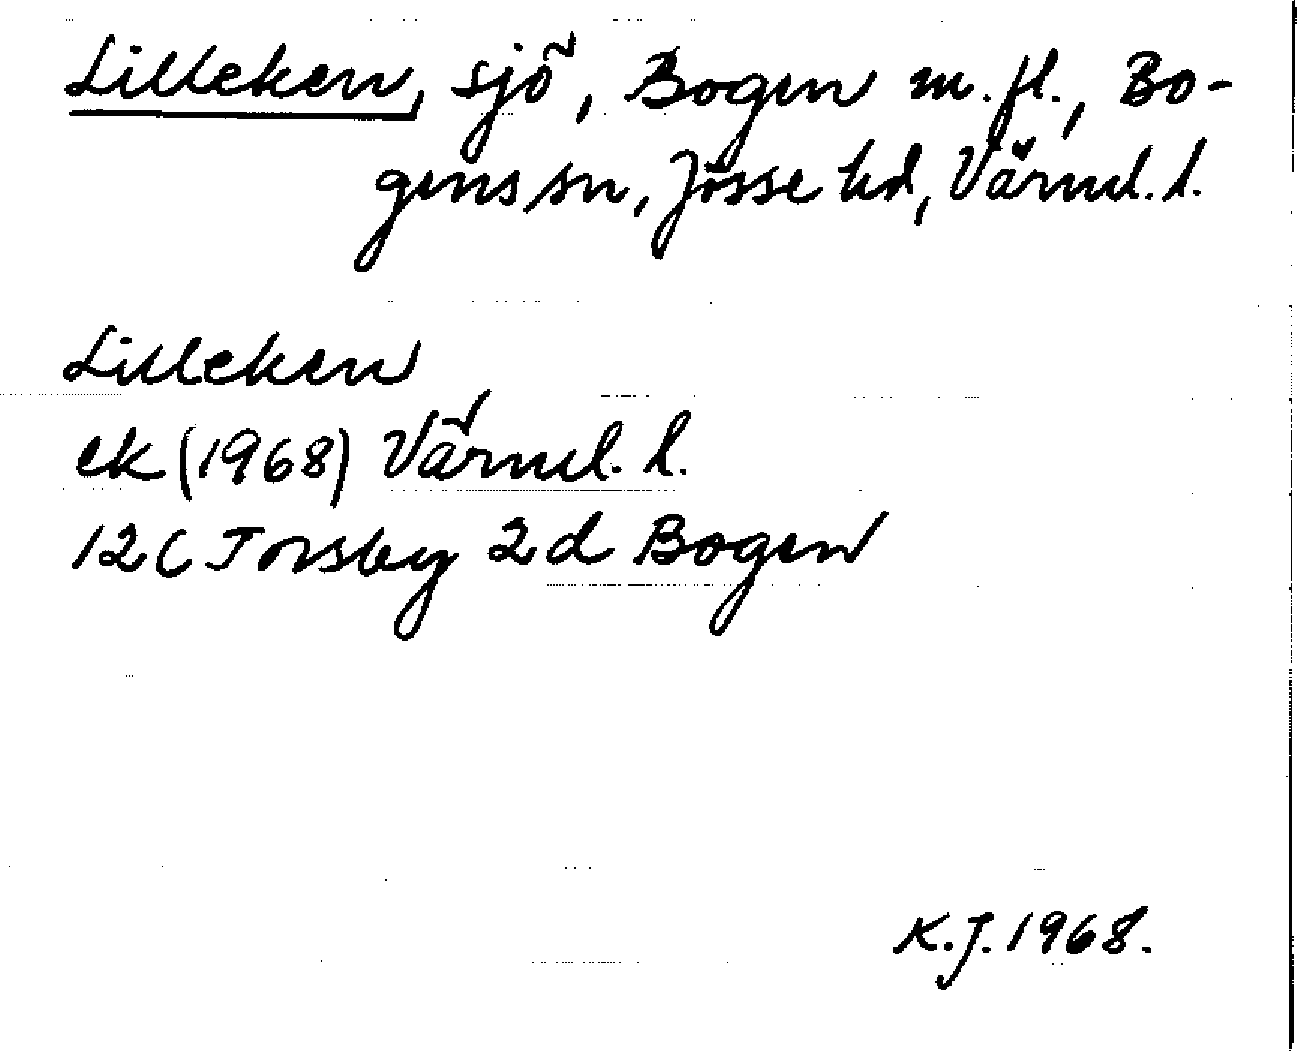 Lilleken, sjö, Bogen m.fl., Bo-
gens sn, Jösse hd, Värml. l.
Lilleken
ek (1968) Värml. l.
12C Torsby 2d Bogen
K.J. 1968.